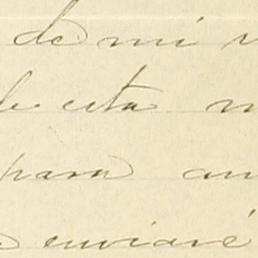 de mi
de esta
para
enviaré